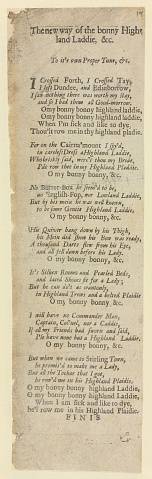 The new way of the bonny High-
land Laddie, &c.
To it's own Proper Tune, &c.
I Crossed Forth, I Crossed Tay,
I left Dundee, and Edinborrow,
I saw nothing there was worth my stay,
and so I bad them all Good-morrow.
O my bonny bonny highland Laddie,
O my bonny bonny highland Laddie,
When I'm sick and like to dye,
Thou'lt row me in thy highland pladie.
For on the Cairn'mount I
in Dress a Highland Laddie,
Who briskly said, were't thou my Bride,
I'le row thee in my Highland Plaidie,
O my bonny bonny, &c.
No Butter Box he seem'd to be,
no English-Fop, nor Lowland Laddie,
But by his mein he was well known,
to be some Gentie Highland Laddie,
O my bonny bonny, &c.
His Quiver hung down by his Thigh,
his Mein did show his Bow was ready,
A thousand Darts flew from his Eye,
and all fell down before his Lady.
O my bonny bonny, &c.
It's Silken Rooms and Pearled Beds,
and laced Shoes fit for a Lady;
But he can do't as wantonly,
in Highland Trews and a belted Plaidie
O my bonny, &c.
I will have no Commander Man,
Captain, Col'nel, nor a Caddie,
If all my Friends had sworn and said,
I'le have none but a Highland Laddie,
O my bonny bonny, &c.
But when we came to Stirling Town,
he promis'd to make me a Lady,
But all the Tocher that I got,
he row'd me in his Highland Plaidie,
O my bonny bonny Highland Laddie,
O my bonny bonny Highland Laddie,
When I am sick and like to dye,
he'l row me in his Highland Plaidie.
FINIS